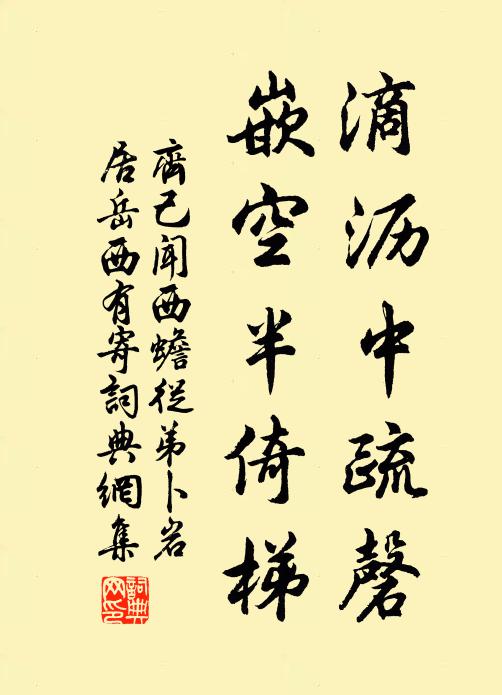 滴沥中疏磬
嵌空半倚梯
齊己闻西蟾從弟卜岩
居岳西有寄詞典網集
詞典网印